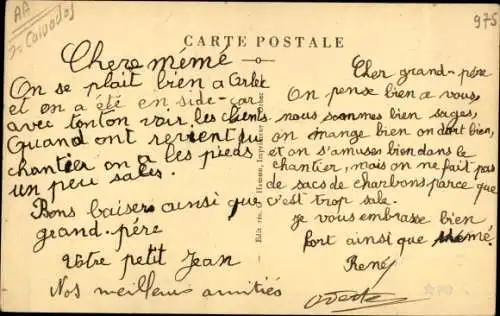 AA
Calvados
975
CARTE POSTALE
Chere mémé
On se plait bien a
et on a été en side-car
avec tonton voir les clients.
Quand ont revient du
chantier on a les pieds
un peu sales.
Bons baisers ainsi que
grand-pére
Votre petit Jean
Nos meilleurs amitiés
Cher grand-pére
On pense bien a vous,
nous sommes bien sages,
on mange bien on dort bien,
et on s'amuses bien dans le
chantier, mais on ne fait pas
de sacs de charbons parce que
c'est trop sale.
je vous embrasse bien
fort ainsi que mémé.
René